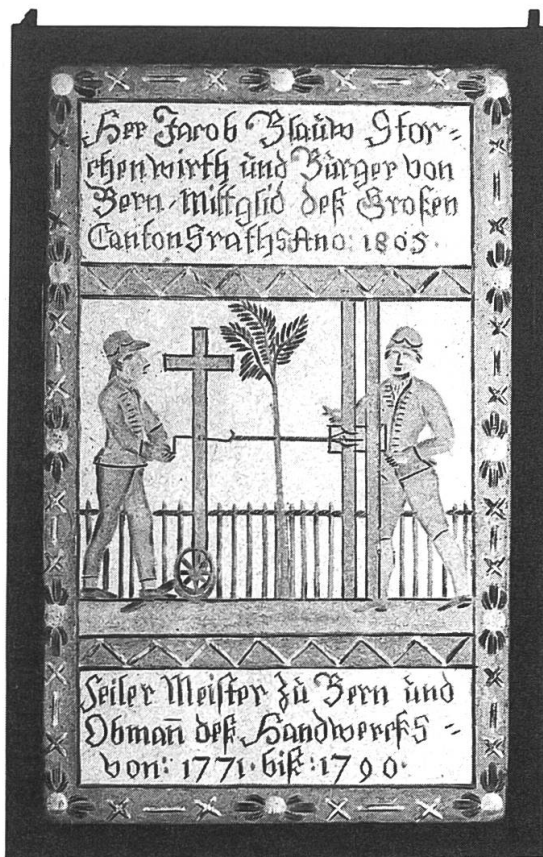 Her Jacob Blauw Stor-
chenwirth und Bürger von
Bern, Mittglid deß Großen
Cantonsraths Ano: 1805.
Seiler Meister zu Bern und
Obmañ deß Handwercks-
von: 1771. biß: 1790.